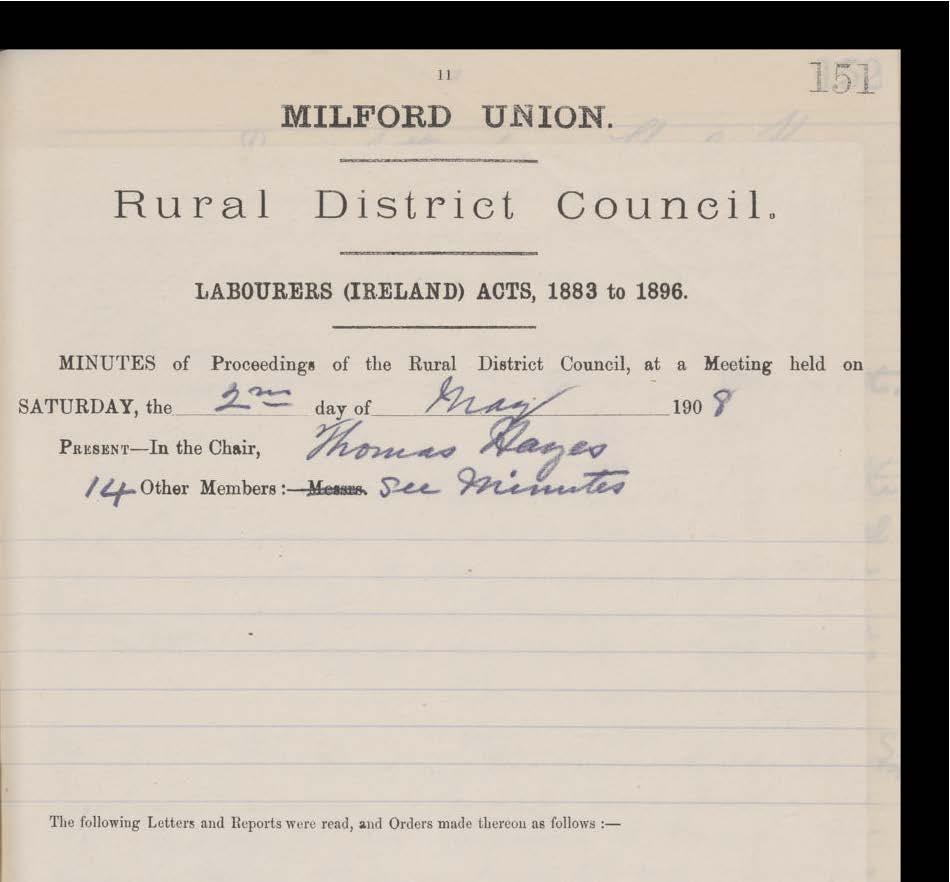 11
151
MILFORD UNION.
Rural District Council.
LABOURERS (IRELAND) ACTS, 1883 to 1896.
MINUTES of Proceedings of the Rural District Council, at a Meeting held on
SATURDAY, the 2nd day of May 1908
PRESENT—In the Chair, Thomas Hayes
14 Other Members :—Messrs. See Minutes
The following Letters and Reports were read, and Orders made thereon as follows :—